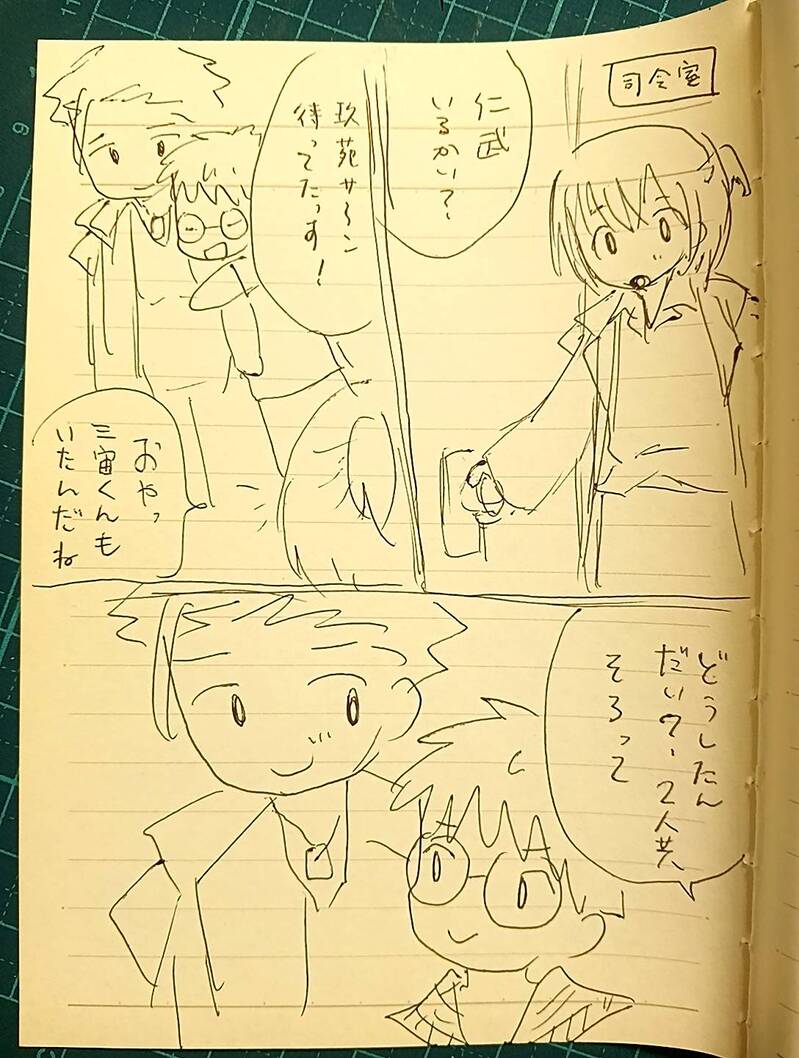 司令室
仁武
いるかい?
玖苑サーン
待ってたっす!
おやっ
三宙くんも
いたんだね
どうしたん
だい?2人共
そろって